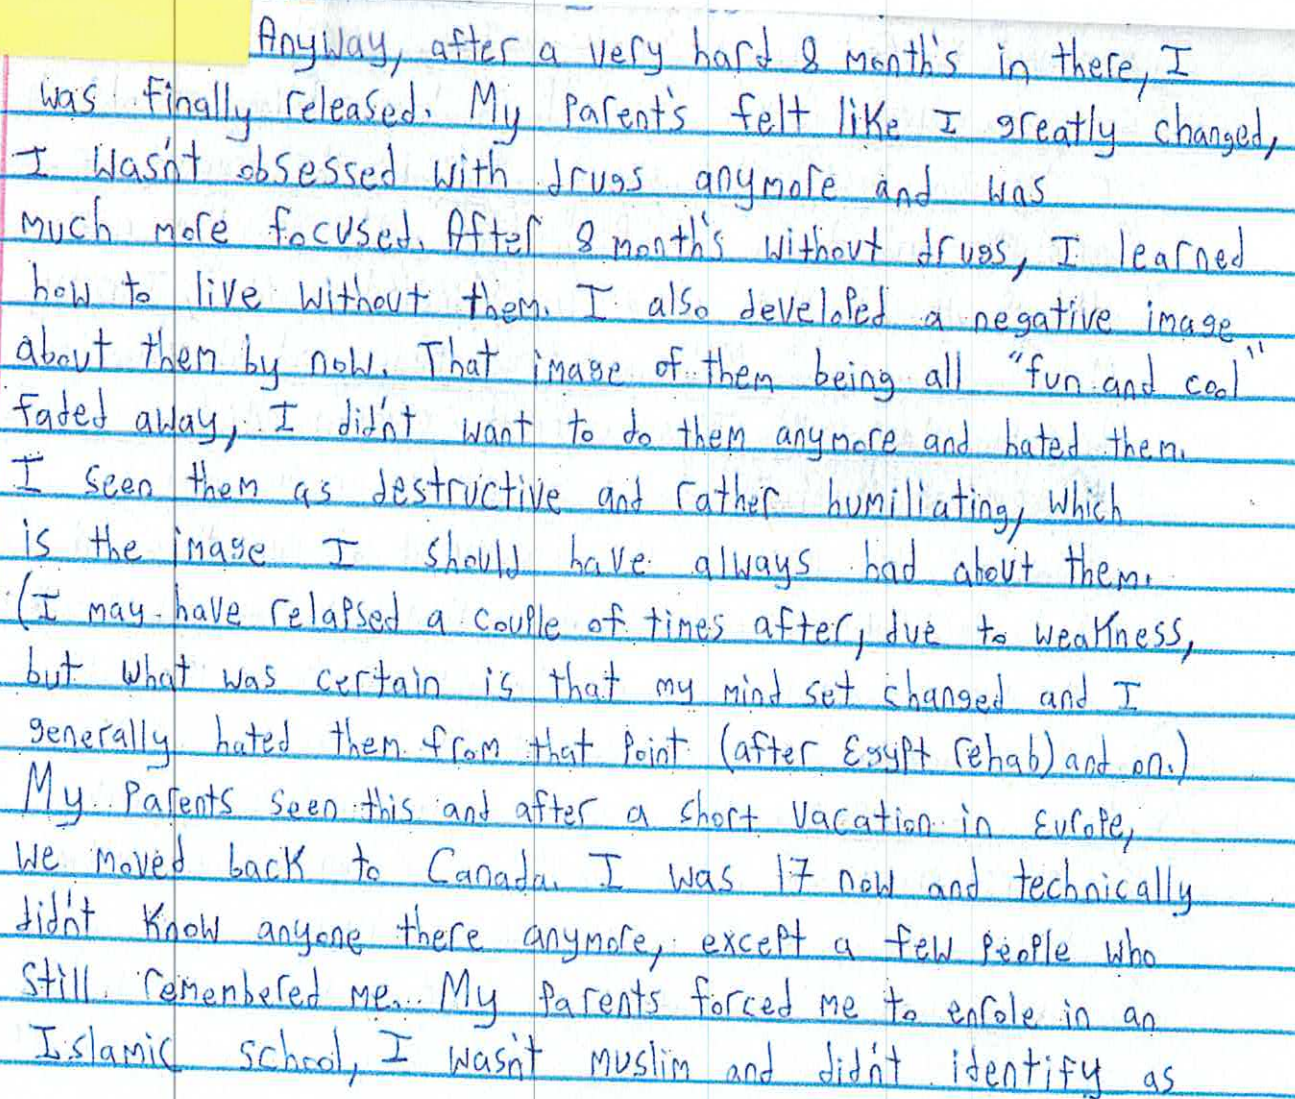 Anyway, after a very hard 8 month's in there, I
was finally released. My Parent's felt like I greatly changed,
I wasn't obsessed with drugs anymore and was
much more focused. After 8 month's without drugs, I learned
how to live without them. I also developed a negative image
about them by now. That image of them being all "fun and cool"
faded away, I didn't want to do them anymore and hated them.
I seen them as destructive and rather humiliating, which
is the image I should have always had about them.
(I may have relapsed a couple of times after, due to weakness,
but what was certain is that my mind set changed and I
generally hated them from that point (after Egypt rehab) and on.)
My Parents seen this and after a short vacation in Europe,
we moved back to Canada. I was 17 now and technically
didn't know anyone there anymore, except a few people who
still remembered me... My parents forced me to enrole in an
Islamic school, I wasn't muslim and didn't identify as